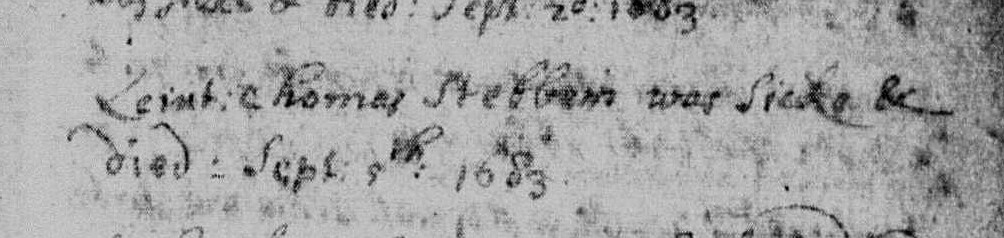 died: Sept: 2d: 1683
Leint: Thomas Stebbin was Sicke &c
died: Sept: 9th: 1683